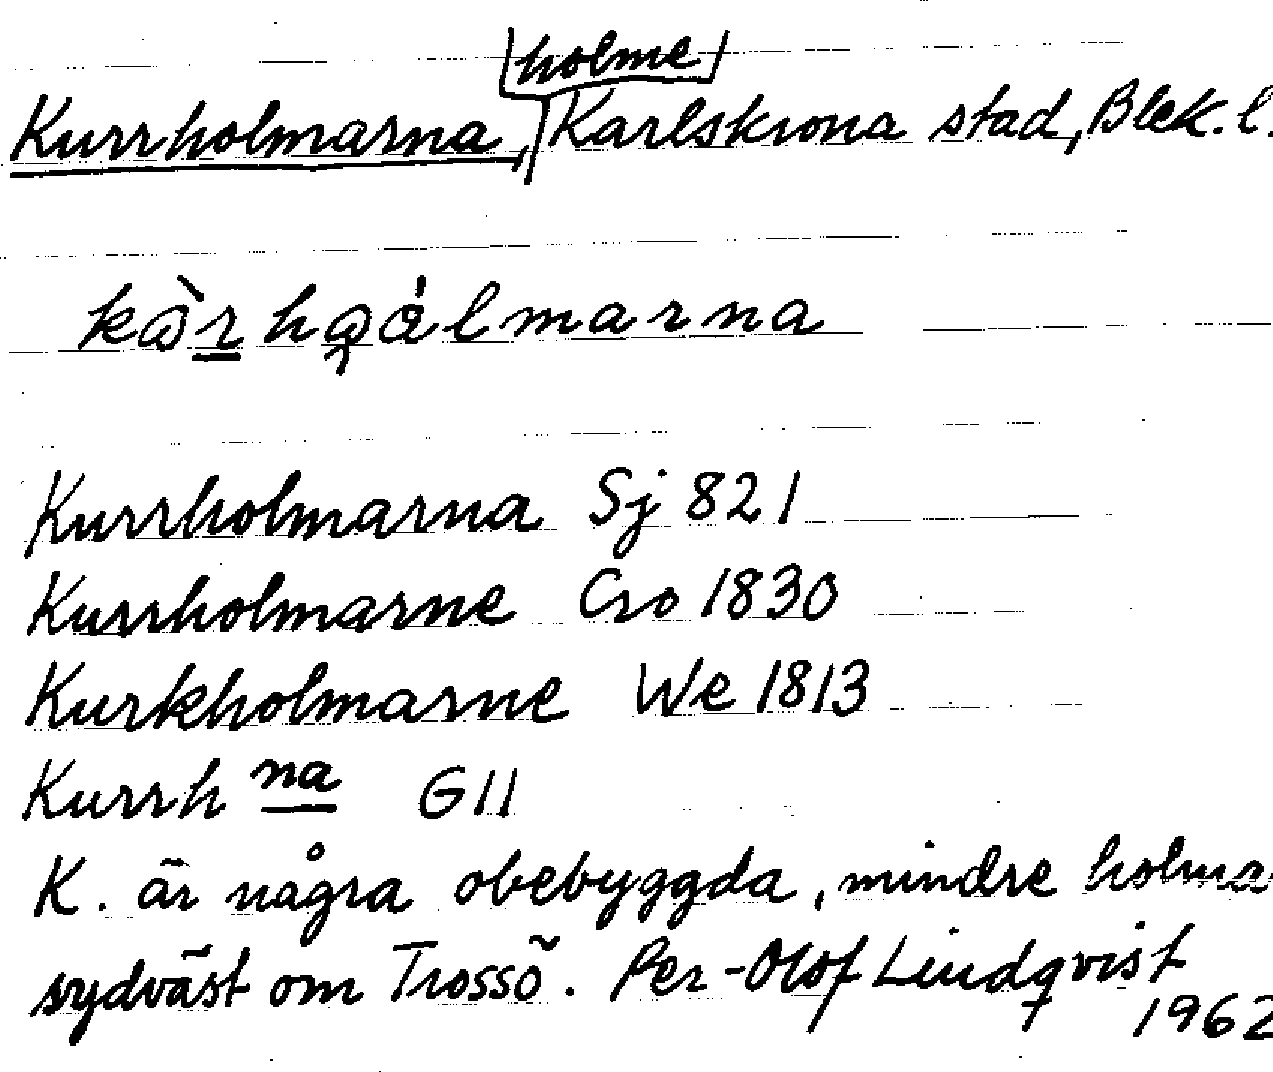 holme
Kurrholmarna, Karlskrona stad, Blek. l.
Kurrholmarna Sj 821
Kurrholmarne Cro 1830
Kurkholmarne We 1813
Kurrh na G11
K. är några obebyggda, mindre holma
sydväst om Trossö. Per-Olof Lindqvist
1962